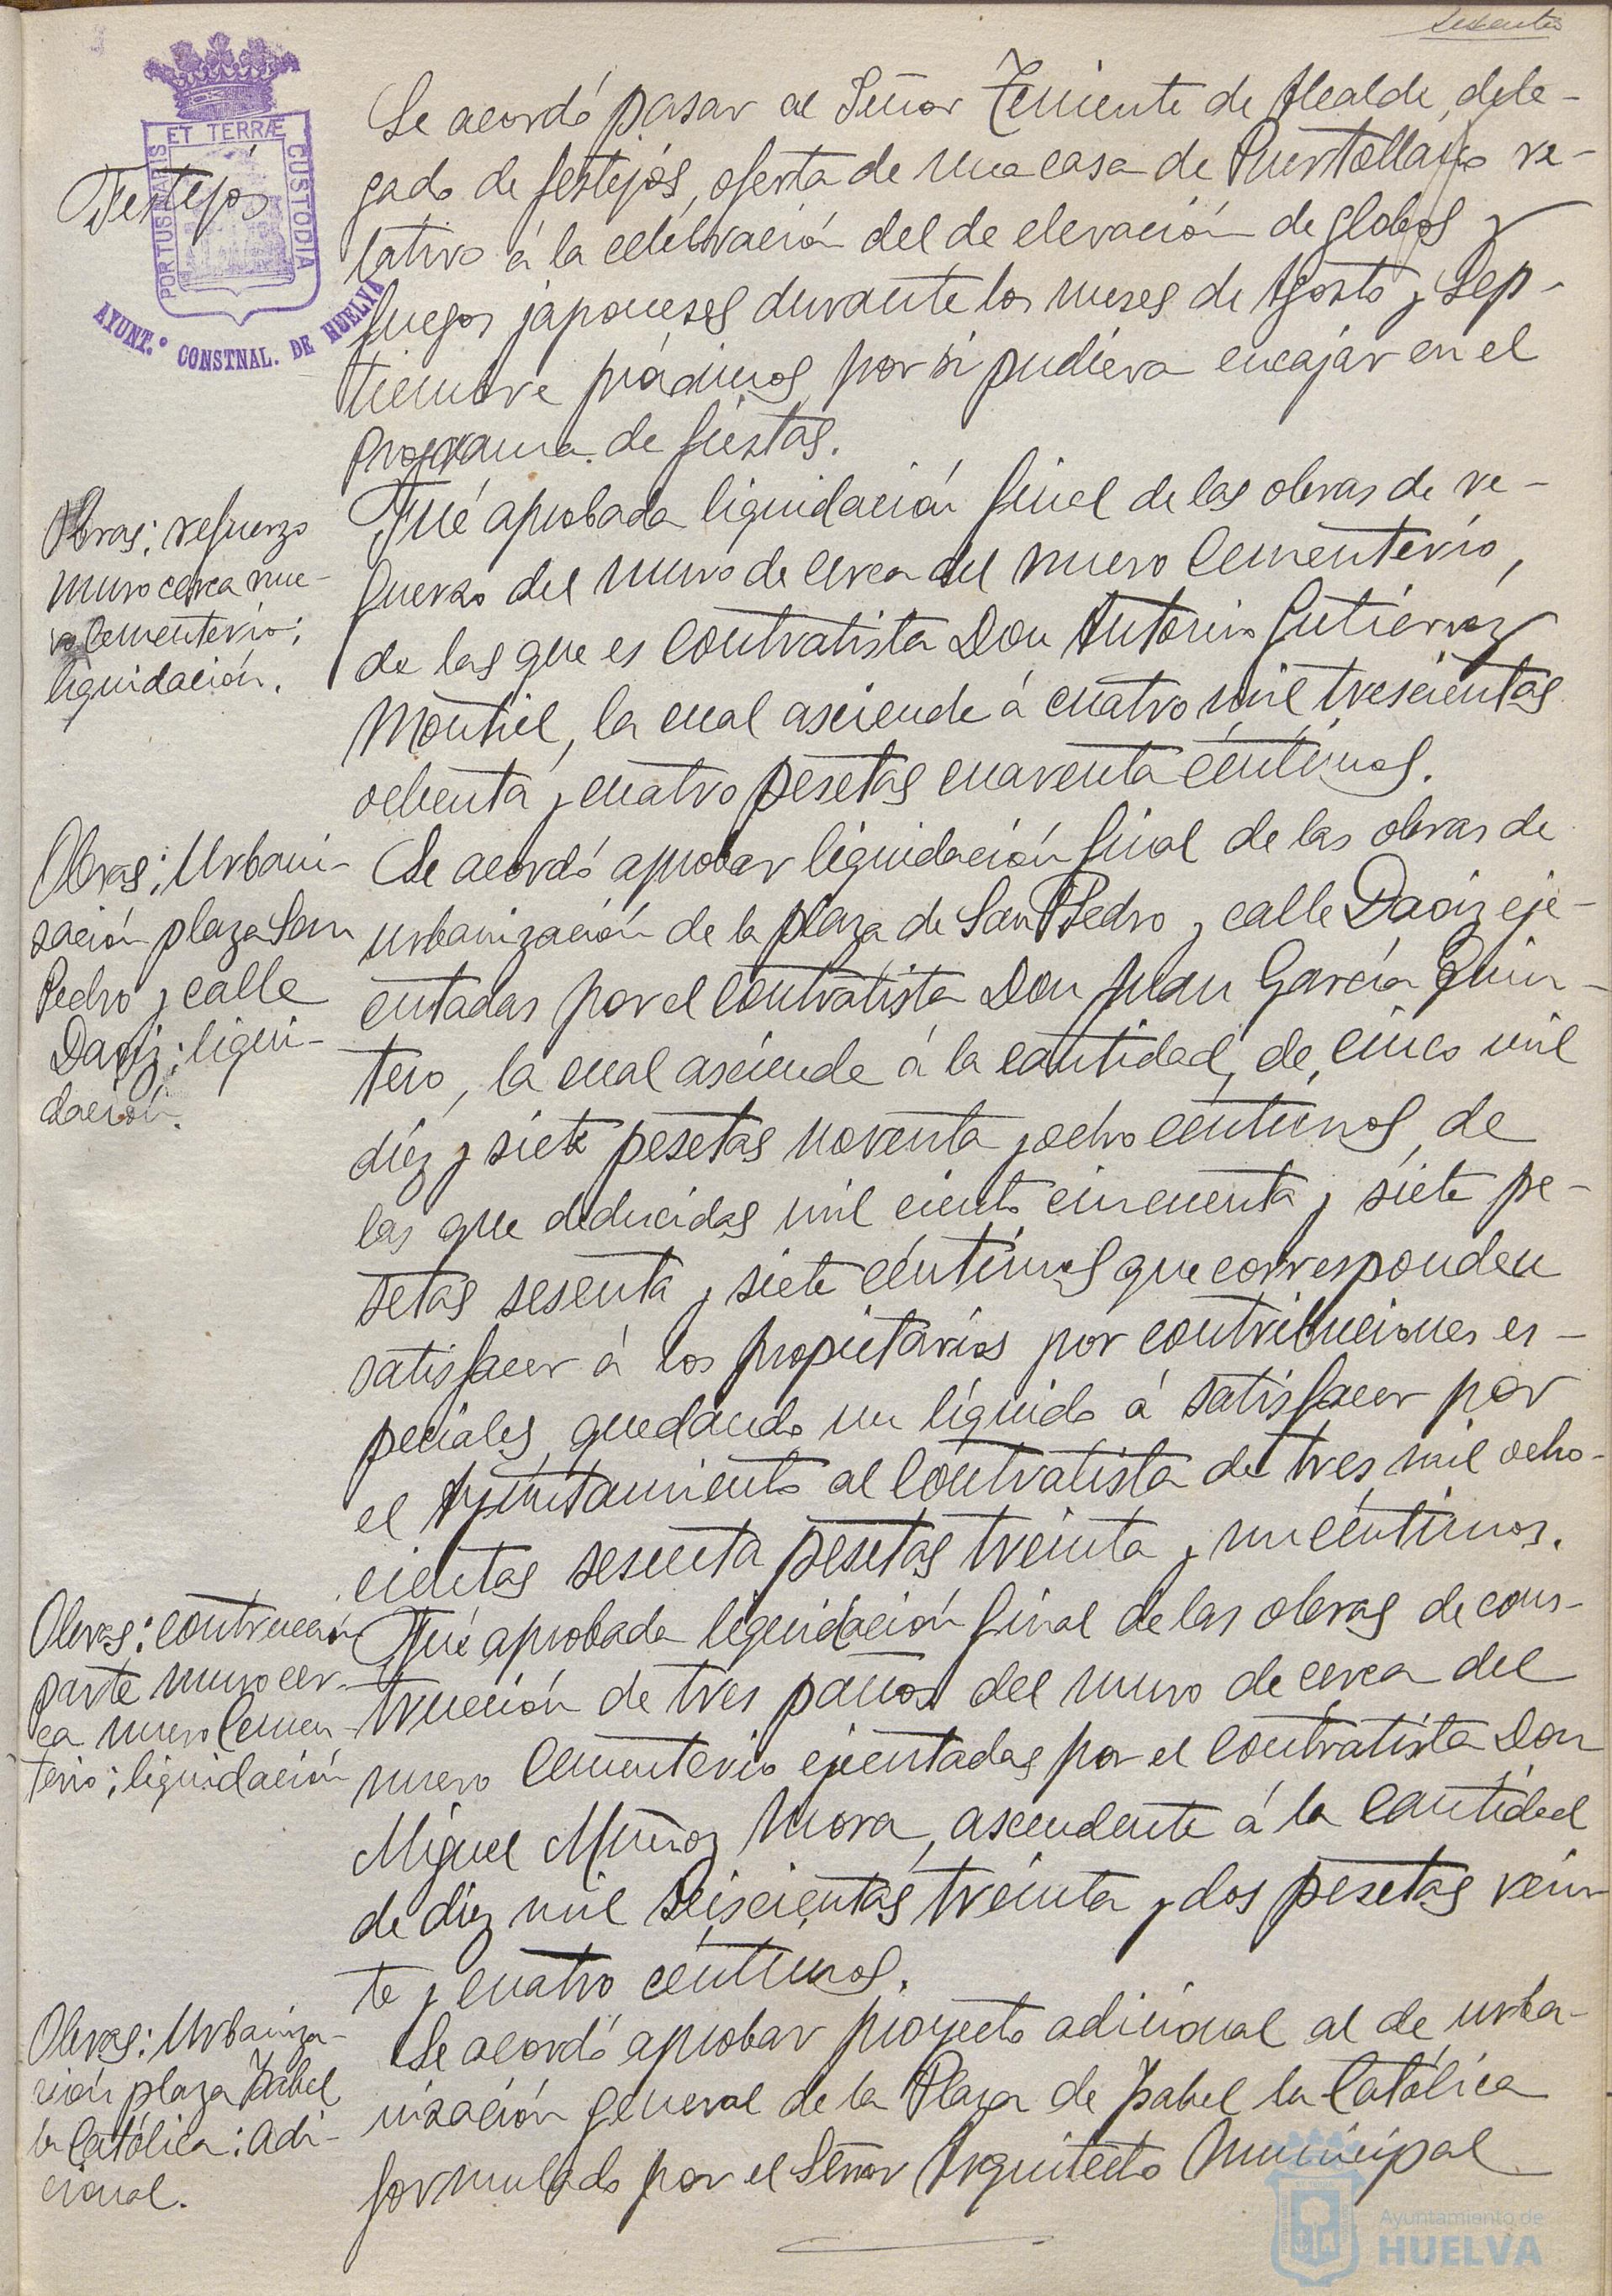 sesenta
PORTUS MARIS ET TERRÆ CUSTODIA
AYUNT.º CONSTNAL. DE HUELVA
Festejos
Se acordó pasar al Señor Teniente de Alcalde, dele-
gado de festejos, oferta de una casa de Puertollano re-
lativo á la celebración del de elevación de globos y
fuegos japoneses durante los meses de Agosto y Sep-
tiembre próximos, por si pudiera encajar en el
programa de fiestas.
Obras: refuerzo
muro cerca nue-
vo Cementerio:
liquidación.
Fué aprobada liquidación final de las obras de re-
fuerzo del muro de cerca del nuevo Cementerio,
de las que es contratista Don Antonio Gutiérrez
Montiel, la cual asciende á cuatro mil trescientas
ochenta y cuatro pesetas cuarenta céntimos.
Obras: Urbani-
zación plaza San
Pedro y calle
Daoiz: liqui-
dación.
Se acordó aprobar liquidación final de las obras de
urbanización de la plaza de San Pedro y calle Daoiz eje-
cutadas por el contratista Don Juan García Quin-
tero, la cual asciende á la cantidad de cinco mil
diez y siete pesetas noventa y ocho céntimos, de
las que deducidas mil ciento cincuenta y siete pe-
setas sesenta y siete céntimos que corresponden
satisfacer á los propietarios por contribuciones es-
peciales, quedando un líquido á satisfacer por
el Ayuntamiento al contratista de tres mil ocho-
cientas sesenta pesetas treinta y un céntimos.
Obras: contrucción
parte muro cer-
ca nuevo Cemen-
terio: liquidación
Fué aprobada liquidación final de las obras de cons-
trucción de tres paños del muro de cerca del
nuevo Cementerio ejecutadas por el contratista Don
Miguel Muñoz Mora, ascendente á la cantidad
de diez mil seiscientas treinta y dos pesetas vein-
te y cuatro céntimos.
Obras: Urbaniza-
ción plaza Isabel
la Católica: Adi-
cional.
Se acordó aprobar proyecto adicional al de urba-
nización general de la Plaza de Isabel la Católica
formulado por el Señor Arquitecto Municipal
Ayuntamiento de
HUELVA